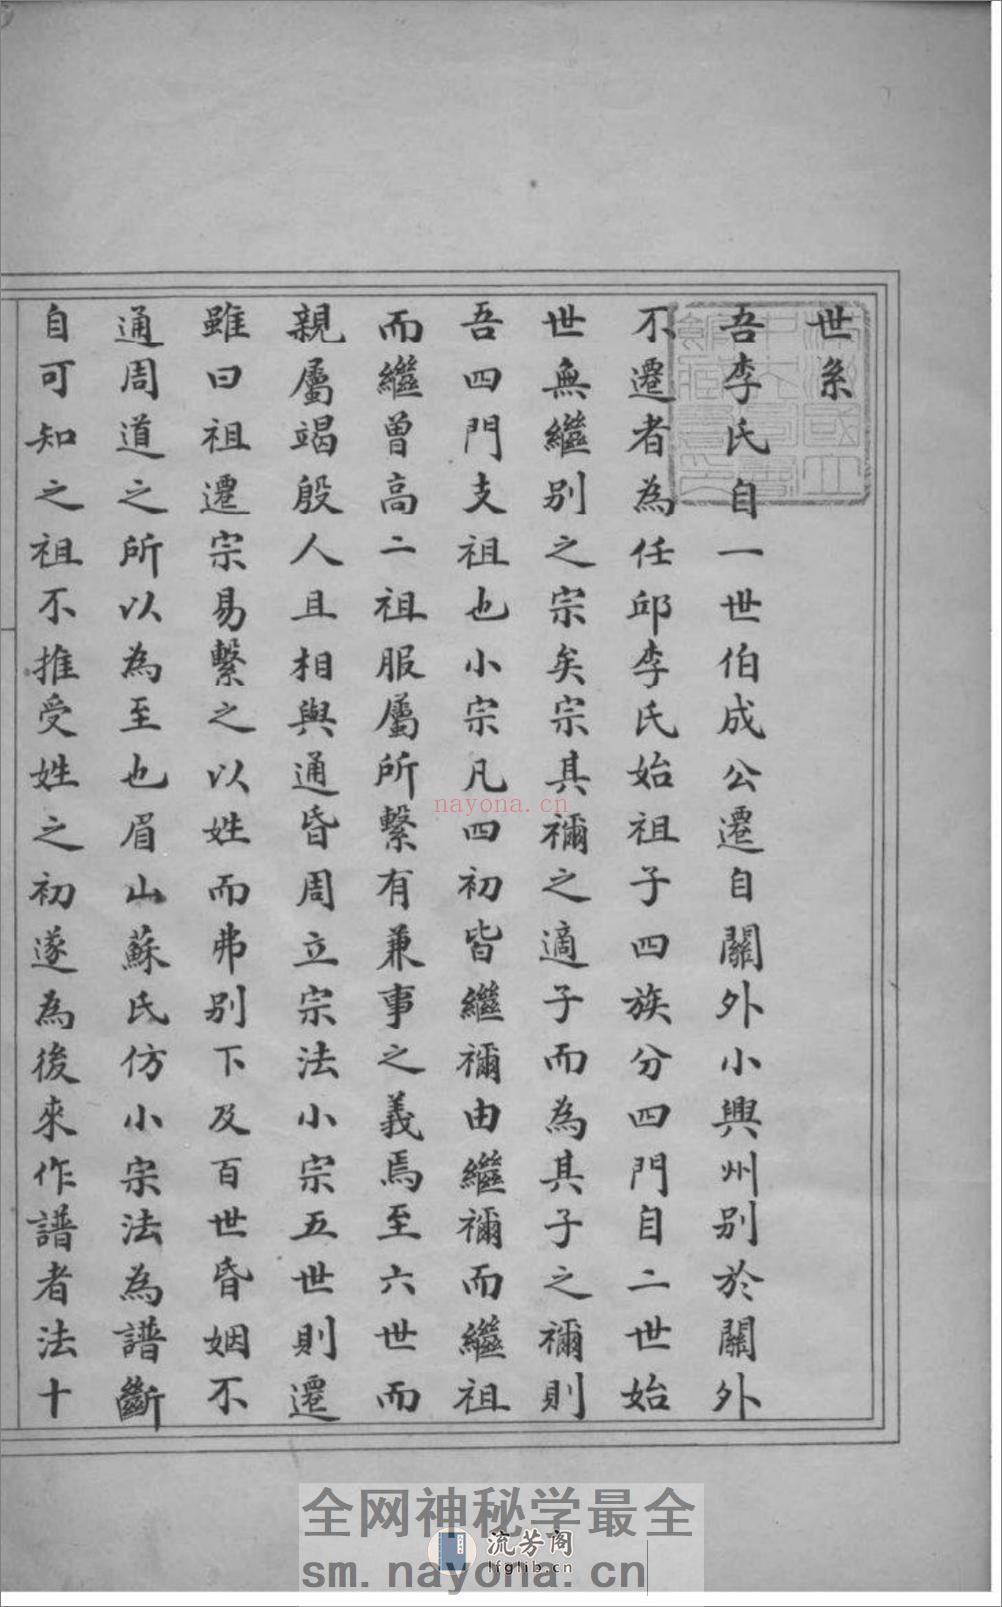 世系
吾李氏自一世伯成公遷自關外小興州别於關外
不遷者為任邱李氏始祖子四族分四門自二世始
世無繼别之宗矣宗其禰之適子而為其子之禰則
吾四門支祖也小宗凡四初皆繼禰由繼禰而繼祖
而繼曾高二祖服屬所繫有兼事之義焉至六世而
親屬竭殷人且相與通昏周立宗法小宗五世則遷
雖曰祖遷宗易繫之以姓而弗别下及百世昏姻不
通周道之所以為至也眉山蘇氏仿小宗法為譜斷
自可知之祖不推受姓之初遂為後來作譜者法十
nayona.cn
全网神秘学最全
流芳阁
lfglib.cn
sm.nayona.cn